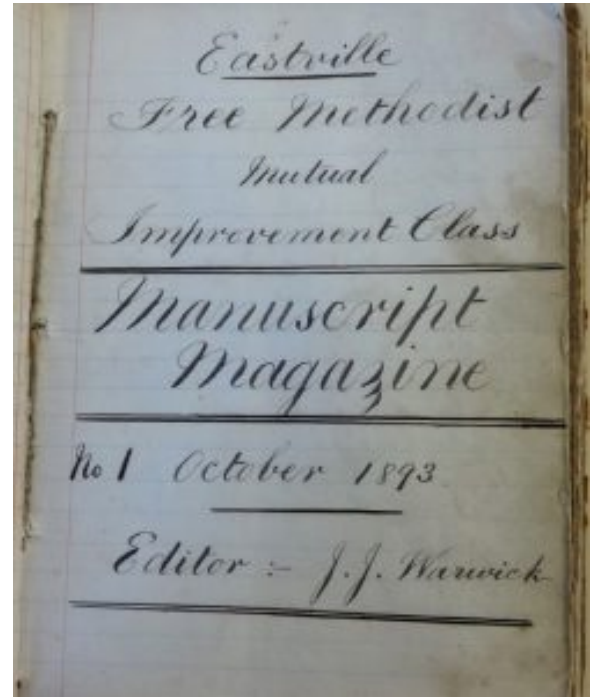 Eastville
Free Methodist
Mutual
Improvement Class
Manuscript
Magazine
No 1 October 1893
Editor :- J. J. Warwick